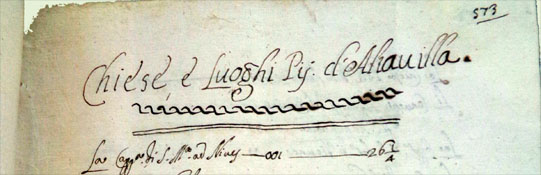 573
Chiese, e Luoghi Pij. d'Altavilla.
La Capp.ⁿᵃ di S. M.ᵃ ad Nives — 001 — 26 1/4